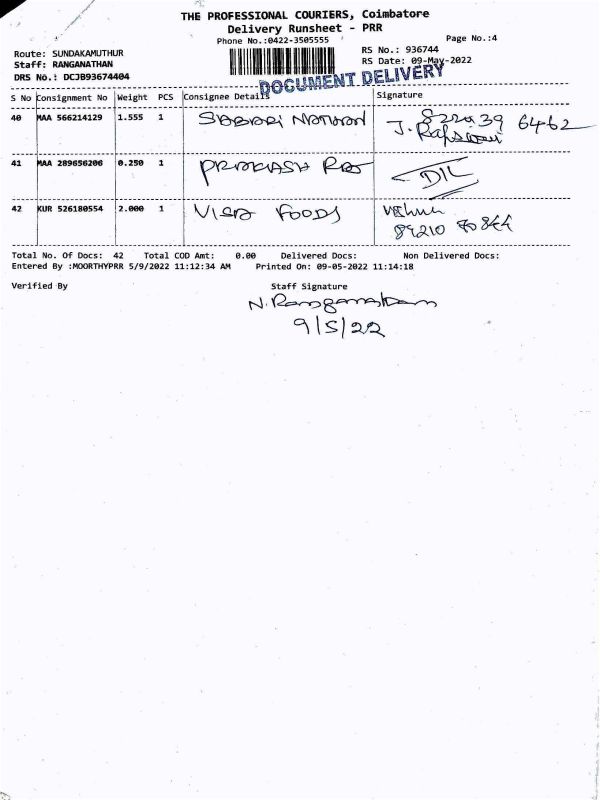 THE PROFESSIONAL COURIERS, Coimbatore
Delivery Runsheet - PRR
Phone No.:0422-3505555
Page No.:4
Route: SUNDAKAMUTHUR
RS No.: 936744
Staff: RANGANATHAN
RS Date: 09-May-2022
DRS No.: DCJB93674404
DOCUMENT DELIVERY
S No Consignment No Weight PCS Consignee Details Signature
40 MAA 566214129 1.555 1 SABARI NATHAN 6462
41 MAA 289656206 0.250 1 PRAKASH
42 KUR 526180554 2.000 1 FOODS
89210
Total No. Of Docs: 42 Total COD Amt: 0.00 Delivered Docs: Non Delivered Docs:
Entered By :MOORTHYPRR 5/9/2022 11:12:34 AM Printed On: 09-05-2022 11:14:18
Verified By Staff Signature
N. Ranganathan
9/5/22